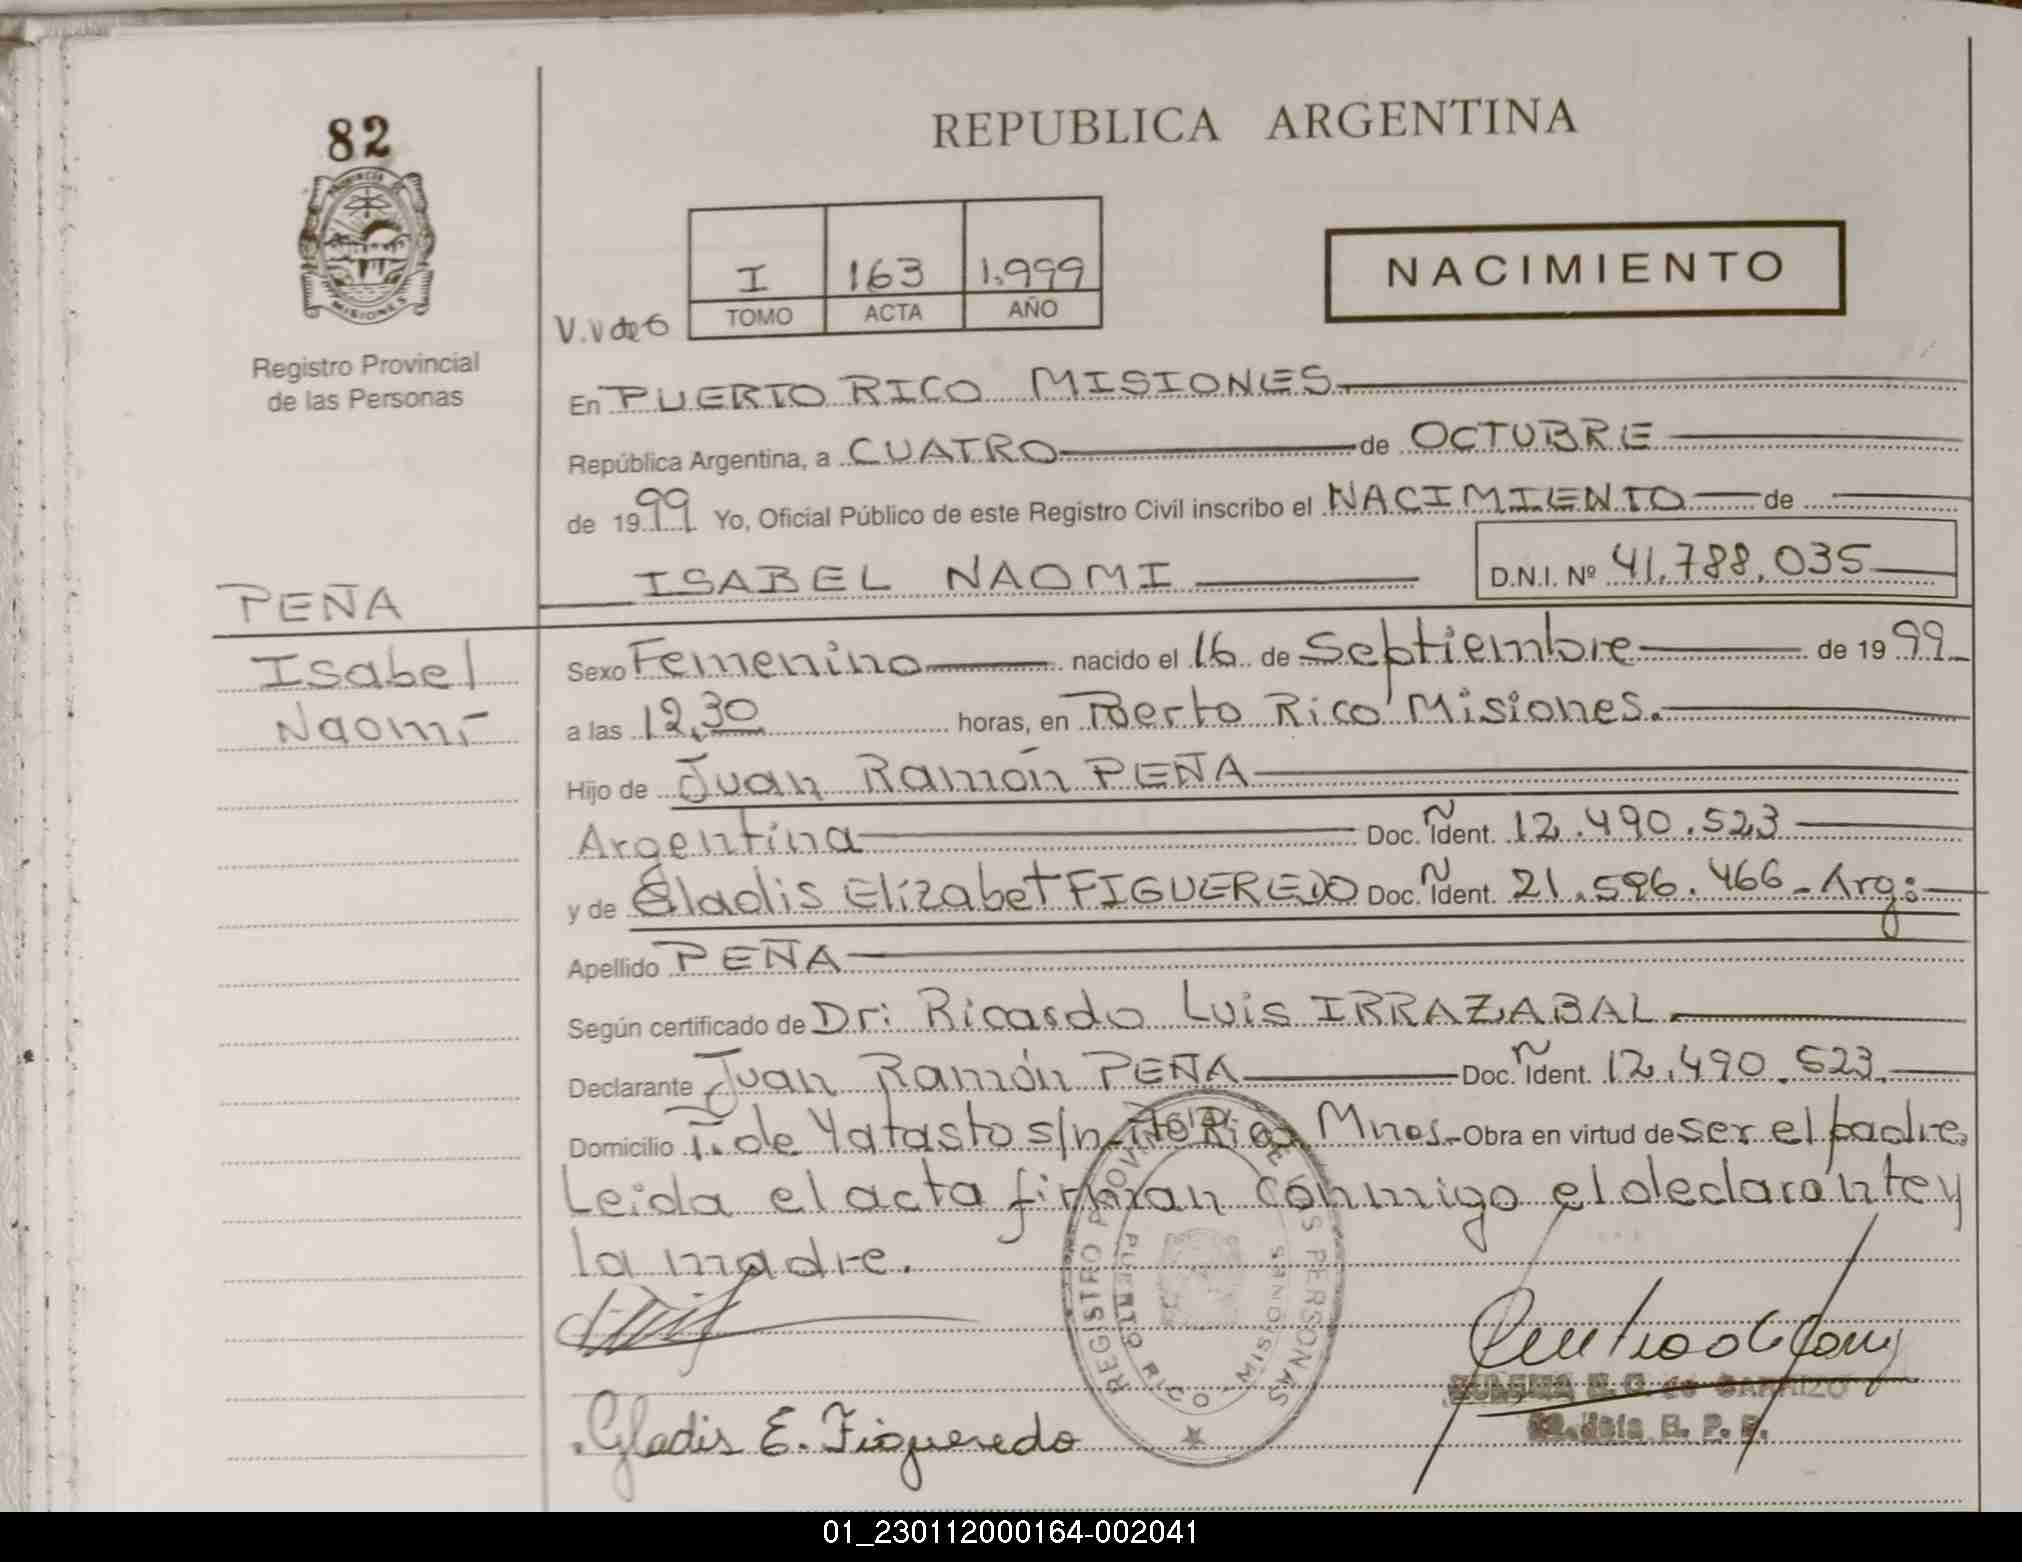 82
PROVINCIA DE
MISIONES
Registro Provincial
de las Personas
REPUBLICA ARGENTINA
I 163 1.999
V.V de 6 TOMO ACTA AÑO
NACIMIENTO
En PUERTO RICO MISIONES
República Argentina, a CUATRO de OCTUBRE
de 1999 Yo, Oficial Público de este Registro Civil inscribo el NACIMIENTO de
ISABEL NAOMI D.N.I. Nº 41.788.035
PEÑA
Isabel
Naomi
Sexo Femenino nacido el 16 de Septiembre de 1999
a las 12,30 horas, en Puerto Rico Misiones.
Hijo de Juan Ramón PEÑA
Argentina Doc. Ident. 12.490.523
y de Gladis Elizabet FIGUEREDO Doc. Ident. 21.596.466 - Arg:
Apellido PEÑA
Según certificado de Dr: Ricardo Luis IRRAZABAL
Declarante Juan Ramón PEÑA Doc. Ident. 12.490.523
Domicilio P. de Yatasto s/n Pto Rico Mnes.- Obra en virtud de ser el padre
Leida el acta firman conmigo el declarante y
la madre.
REGISTRO PROVINCIAL DE LAS PERSONAS
PUERTO RICO - MISIONES
Gladis E. Figueredo
de CARRIZO
R. P. P.
01_230112000164-002041